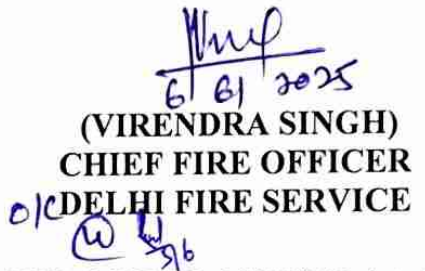 6/6/2025
(VIRENDRA SINGH)
CHIEF FIRE OFFICER
O/C DELHI FIRE SERVICE
5/6